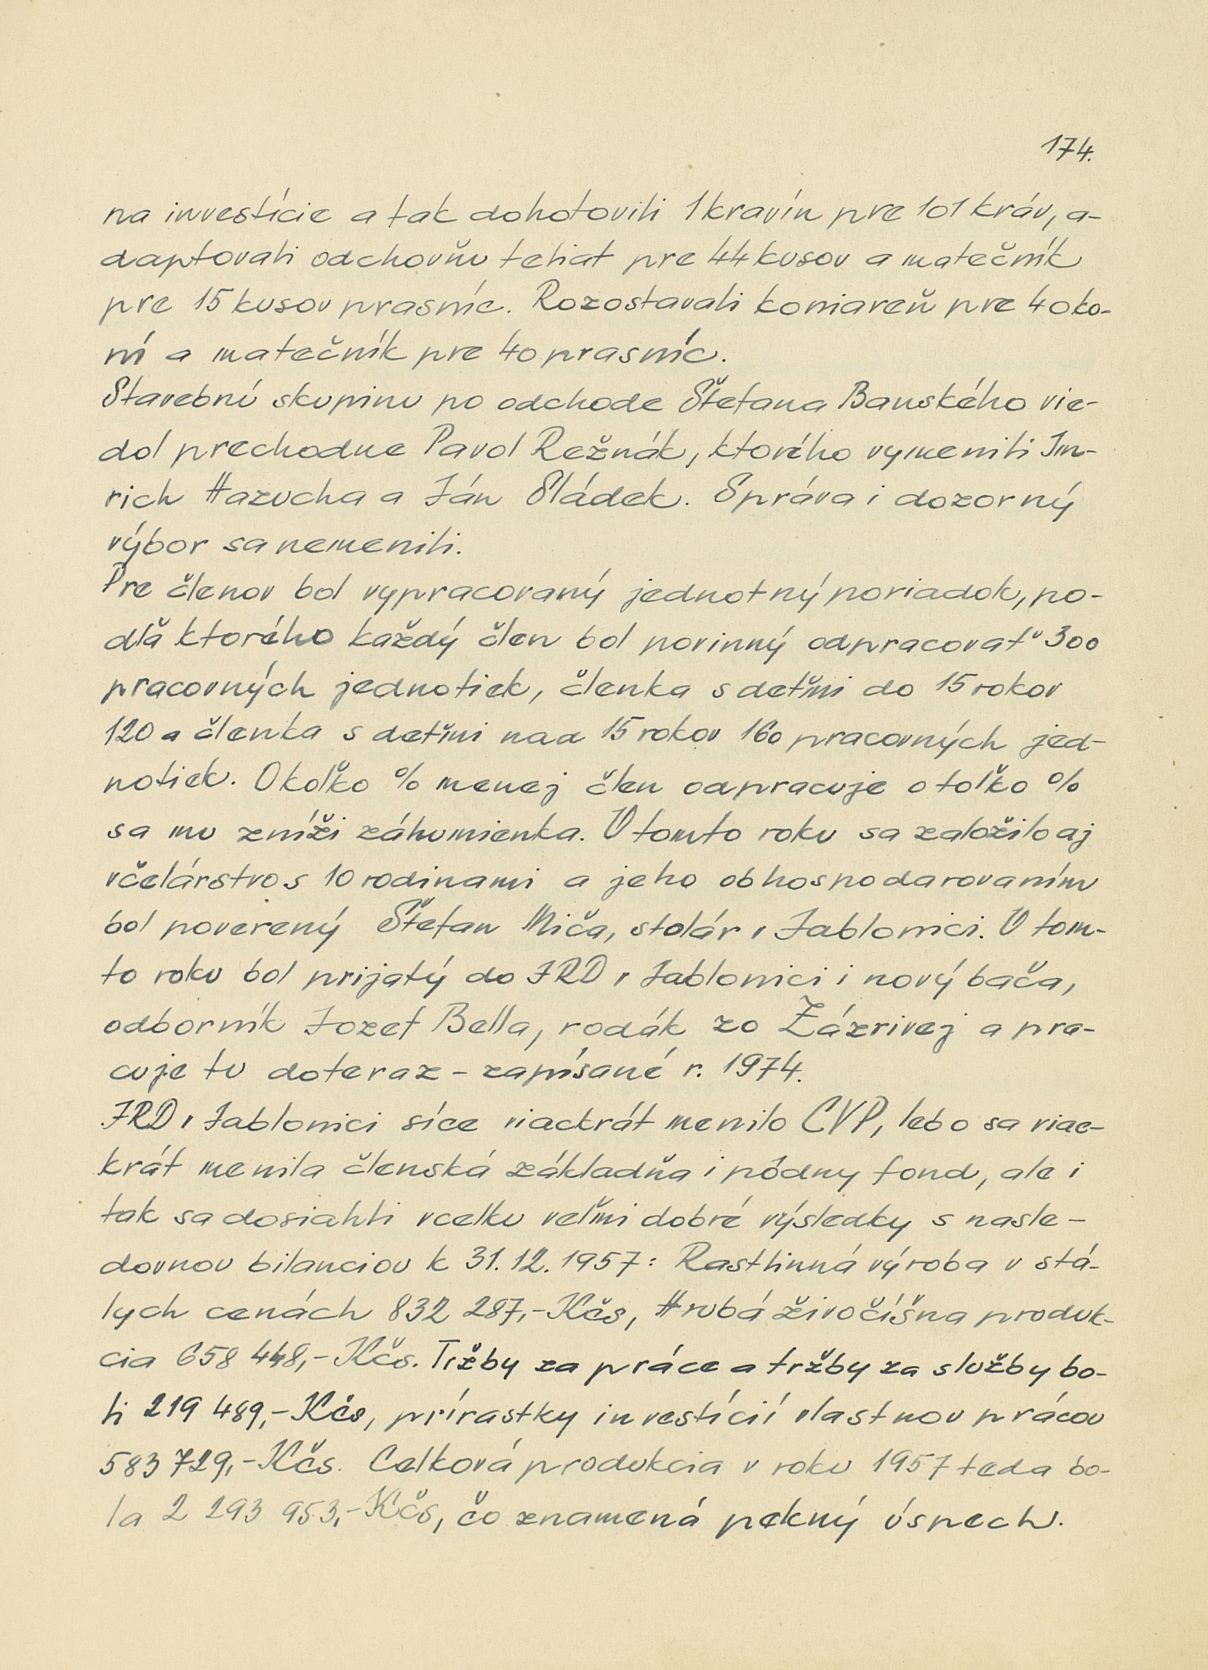 174.
na investície a tak dohotovili 1 kravín pre 101 kráv, a-
daptovali odchovňu teliat pre 44 kusov a matečník
pre 15 kusov prasníc. Rozostavali koniareň pre 40 ko-
ní a matečník pre 40 prasníc.
Stavebnú skupinu po odchode Štefana Banského vie-
dol prechodne Pavol Režnák, ktorého vymenili Im-
rich Hazucha a Ján Sládek. Správa i dozorný
výbor sa nemenili.
Pre členov bol vypracovaný jednotný poriadok, po-
dľa ktorého každý člen bol povinný odpracovať 300
pracovných jednotiek, členka s deťmi do 15 rokov
120 a členka s deťmi nad 15 rokov 160 pracovných jed-
notiek. Okoľko % menej člen odpracuje o toľko %
sa mu zníži záhumienka. V tomto roku sa založilo aj
včelárstvo s 10 rodinami a jeho obhospodarovaním
bol poverený Štefan Miča, stolár v Jablonici. V tom-
to roku bol prijatý do JRD v Jablonici i nový bača,
odborník Jozef Bella, rodák zo Zázrivej a pra-
cuje tu doteraz - zapísané r. 1974.
JRD v Jablonici síce viackrát menilo CVP, lebo sa viac-
krát menila členská základňa i pôdny fond, ale i
tak sa dosiahli vcelku veľmi dobré výsledky s nasle-
dovnou bilanciou k 31. 12. 1957: Rastlinná výroba v stá-
lych cenách 832 287,- Kčs, Hrubá živočíšna produk-
cia 658 448,- Kčs. Tržby za práce a tržby za služby bo-
li 219 489,- Kčs, prírastky investícií vlastnou prácou
583 729,- Kčs. Celková produkcia v roku 1957 teda bo-
la 2 293 953,- Kčs, čo znamená pekný úspech.